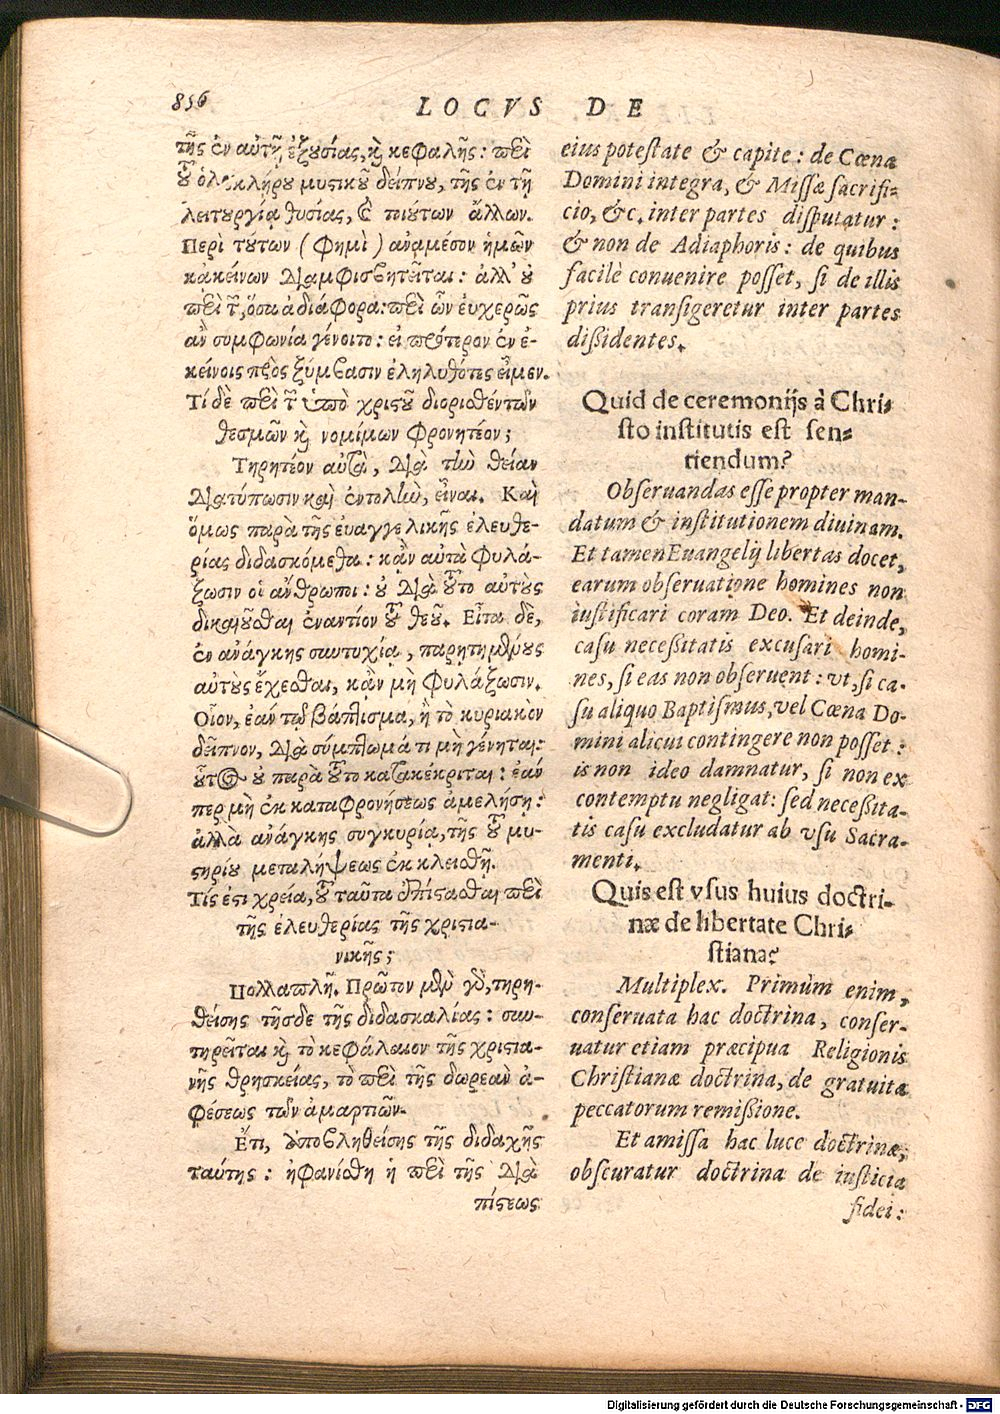 856
LOCVS DE
τῆς ἐν αὐτῇ ἐξουσίας, καὶ κεφαλῆς: περὶ
τοῦ ὁλοκλήρου μυστικοῦ δείπνου, τῆς ἐν τῇ
λειτουργίᾳ θυσίας, καὶ τοιούτων ἄλλων.
Περὶ τούτων (φημὶ) ἀναμέσον ἡμῶν
κακείνων διαμφισβητεῖται: ἀλλ' οὐ
περὶ τῶν, ὅσα ἀδιάφορα: περὶ ὧν εὐχερῶς
ἂν συμφωνία γένοιτο: εἰ πρότερον ἐν ἐ-
κείνοις πρὸς ξύμβασιν ἐληλυθότες εἶμεν.
Τί δὲ περὶ τῶν ὑπὸ χριστοῦ διορισθέντων
θεσμῶν καὶ νομίμων φρονητέον;
Τηρητέον αὐτὰ, διὰ τὴν θείαν
διατύπωσιν καὶ ἐντολὴν, εἶναι. Καὶ
ὅμως παρὰ τῆς εὐαγγελικῆς ἐλευθε-
ρίας διδασκόμεθα: κᾂν αὐτὰ φυλά-
ξωσιν οἱ ἄνθρωποι: οὐ διὰ τοῦτο αὐτοὺς
δικαιοῦσθαι ἐναντίον τοῦ θεοῦ. Εἶτα δὲ,
ἐν ἀνάγκης συντυχίᾳ, παρῃτημένους
αὐτοὺς ἔχεσθαι, κᾂν μὴ φυλάξωσιν.
Οἷον, ἐάν τῳ βάπτισμα, ἢ τὸ κυριακὸν
δεῖπνον, διὰ σύμπτωμά τι μὴ γένηται:
οὗτος οὐ παρὰ τοῦτο κατακέκριται: ἐάν
περ μὴ ἐκ καταφρονήσεως ἀμελήσῃ:
ἀλλὰ ἀνάγκης συγκυρίᾳ, τῆς τοῦ μυ-
στηρίου μεταλήψεως ἐκκλεισθῇ.
Τίς ἐστι χρεία, τοῦ ταῦτα ἐπίστασθαι περὶ
τῆς ἐλευθερίας τῆς χριστια-
νικῆς;
Πολλαπλῆ. Πρῶτον μὲν γὰρ, τηρη-
θείσης τῆσδε τῆς διδασκαλίας: συν-
τηρεῖται καὶ τὸ κεφάλαιον τῆς χριστια-
νῆς θρησκείας, τὸ περὶ τῆς δωρεὰν ἀ-
φέσεως τῶν ἁμαρτιῶν.
Ἔτι, ἀποβληθείσης τῆς διδαχῆς
ταύτης: ἠφανίσθη ἡ περὶ τῆς διὰ
πίστεως
eius potestate & capite: de Cœna
Domini integra, & Missæ sacrifi-
cio, &c. inter partes disputatur:
& non de Adiaphoris: de quibus
facilè conuenire posset, si de illis
prius transigeretur inter partes
dissidentes.
Quid de ceremonijs à Chri-
sto institutis est sen-
tiendum?
Obseruandas esse propter man-
datum & institutionem diuinam.
Et tamen Euangelij libertas docet,
earum obseruatione homines non
iustificari coram Deo. Et deinde,
casu necessitatis excusari homi-
nes, si eas non obseruent: vt, si ca-
su aliquo Baptismus, vel Cœna Do-
mini alicui contingere non posset:
is non ideo damnatur, si non ex
contemptu negligat: sed necessita-
tis casu excludatur ab vsu Sacra-
menti.
Quis est vsus huius doctri-
næ de libertate Chri-
stiana?
Multiplex. Primùm enim,
conseruata hac doctrina, conser-
uatur etiam præcipua Religionis
Christianæ doctrina, de gratuita
peccatorum remissione.
Et amissa hac luce doctrinæ,
obscuratur doctrina de iusticia
fidei:
Digitalisierung gefördert durch die Deutsche Forschungsgemeinschaft - DFG